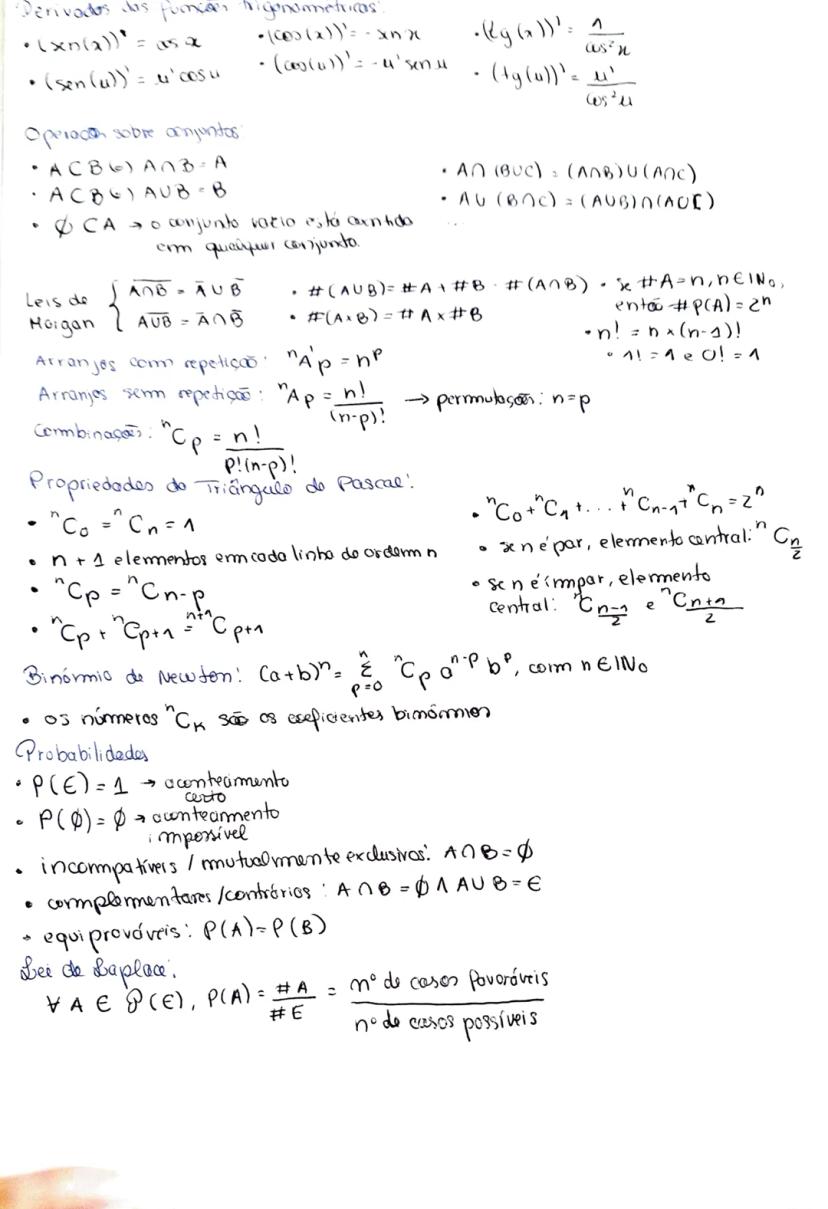 Derivadas das funções trigonométricas:
• (sen(x))' = cos x • (cos(x))' = -sen x • (tg(x))' = 1/cos²x
• (sen(u))' = u' cos u • (cos(u))' = -u' sen u • (tg(u))' = u'/cos²u
Operação sobre conjuntos:
• A⊂B⇔A∩B=A
• A⊂B⇔A∪B=B
• ∅⊂A → o conjunto vazio está contido
em qualquer conjunto.
• A∩(B∪C) = (A∩B)∪(A∩C)
• A∪(B∩C) = (A∪B)∩(A∪C)
Leis de Morgan { A̅∩̅B̅ = A̅∪B̅
A̅∪̅B̅ = A̅∩B̅
• #(A∪B) = #A + #B - #(A∩B)
• #(A×B) = #A × #B
• se #A=n, n∈ℕ₀,
então #P(A) = 2ⁿ
• n! = n×(n-1)!
• 1! = 1 e 0! = 1
Arranjos com repetição: ⁿA'p = nᵖ
Arranjos sem repetição: ⁿAp = n!/(n-p)! → permutações: n=p
Combinações: ⁿCp = n!/p!(n-p)!
Propriedades do Triângulo de Pascal:
• ⁿC₀ = ⁿCn = 1
• n+1 elementos em cada linha de ordem n
• ⁿCp = ⁿCn-p
• ⁿCp + ⁿCp+1 = ⁿ⁺¹Cp+1
• ⁿC₀ + ⁿC₁ + ... + ⁿCn-1 + ⁿCn = 2ⁿ
• se n é par, elemento central: ⁿC n/2
• se n é ímpar, elemento
central: ⁿC (n-1)/2 e ⁿC (n+1)/2
Binómio de Newton: (a+b)ⁿ = Σ(p=0, n) ⁿCp aⁿ⁻ᵖ bᵖ, com n∈ℕ₀
• os números ⁿCk são os coeficientes binómios
Probabilidades
• P(E) = 1 → acontecimento
certo
• P(∅) = ∅ → acontecimento
impossível
• incompatíveis / mutualmente exclusivos: A∩B=∅
• complementares/contrários: A∩B=∅ ∧ A∪B=E
→ equiprováveis: P(A)=P(B)
Lei de Laplace:
∀ A ∈ 𝒫(E), P(A) = #A/#E = nº de casos favoráveis/nº de casos possíveis